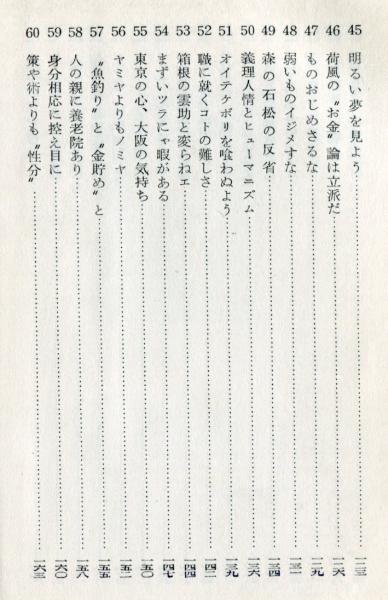 45 明るい夢を見よう 一二三
46 荷風の〝お金〟論は立派だ 一二六
47 ものおじめさるな 一二九
48 弱いものイジメすな 一三一
49 森の石松の反省 一三四
50 義理人情とヒューマニズム 一三六
51 オイテケボリを喰わぬよう 一三九
52 職に就くコトの難しさ 一四二
53 箱根の雲助と変らねェ 一四四
54 まずいツラにゃ暇がある 一四七
55 東京の心、大阪の気持ち 一五〇
56 ヤミヤよりもノミヤ 一五二
57 〝魚釣り〟と〝金貯め〟と 一五五
58 人の親に養老院あり 一五八
59 身分相応に控え目に 一六〇
60 策や術よりも〝性分〟 一六三